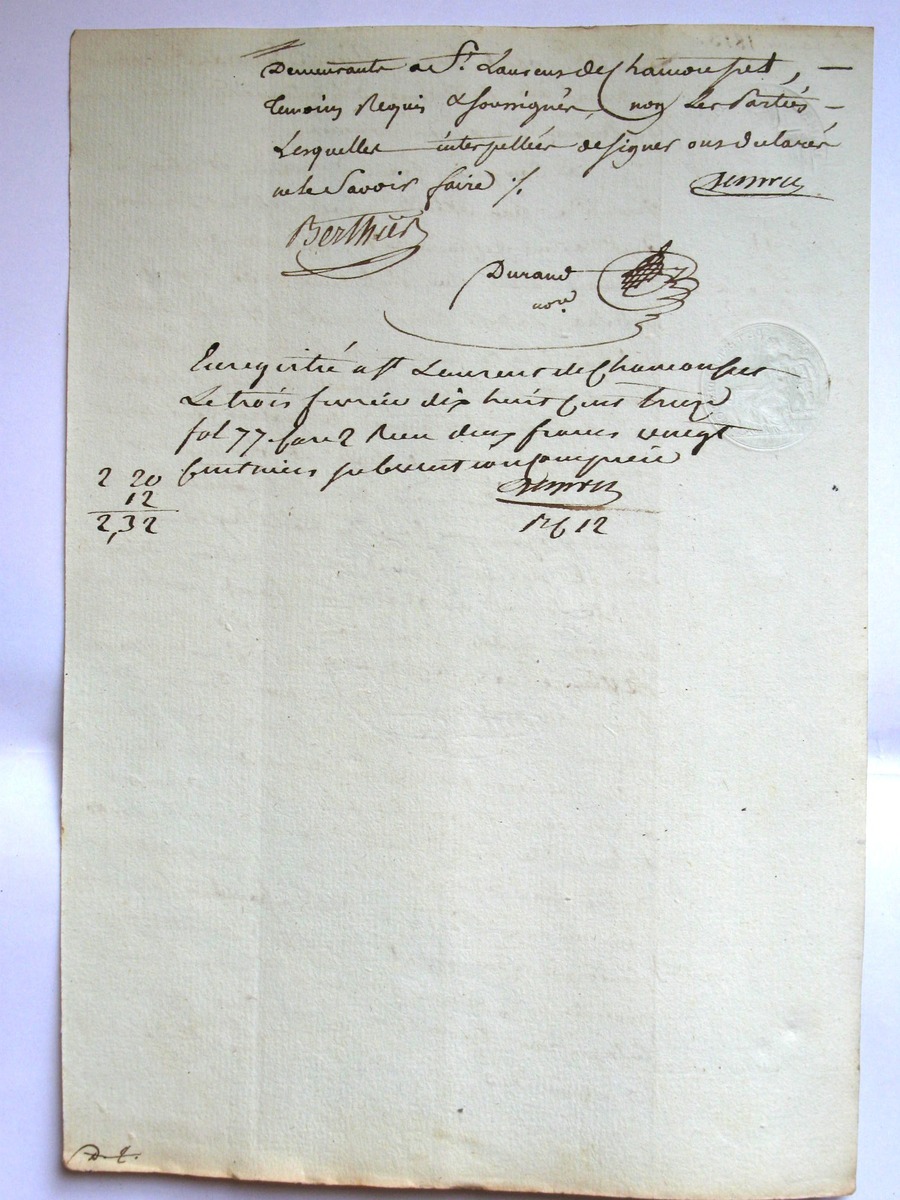 Demeurants a St. Laurens de Chamousset, —
temoins Requis & soussignés, non Les Parties —
Lesquelles interpellées de signer ont declarés
ne le Savoir faire ./.
Berthier
Durand
nore
Enregistré a St Laurent de Chamousset
Le trois fevrier dix huit cent treize
fol 77 Case 2 Recu deux francs vingt
Centimes subvention Comprise
2 20
12
2,32
12
D. t.